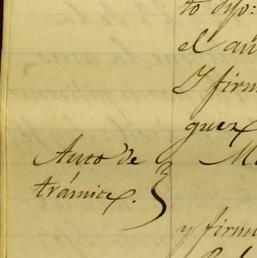 to dijo:
el
Y firm
guez
Auto de
trámite.
y firm